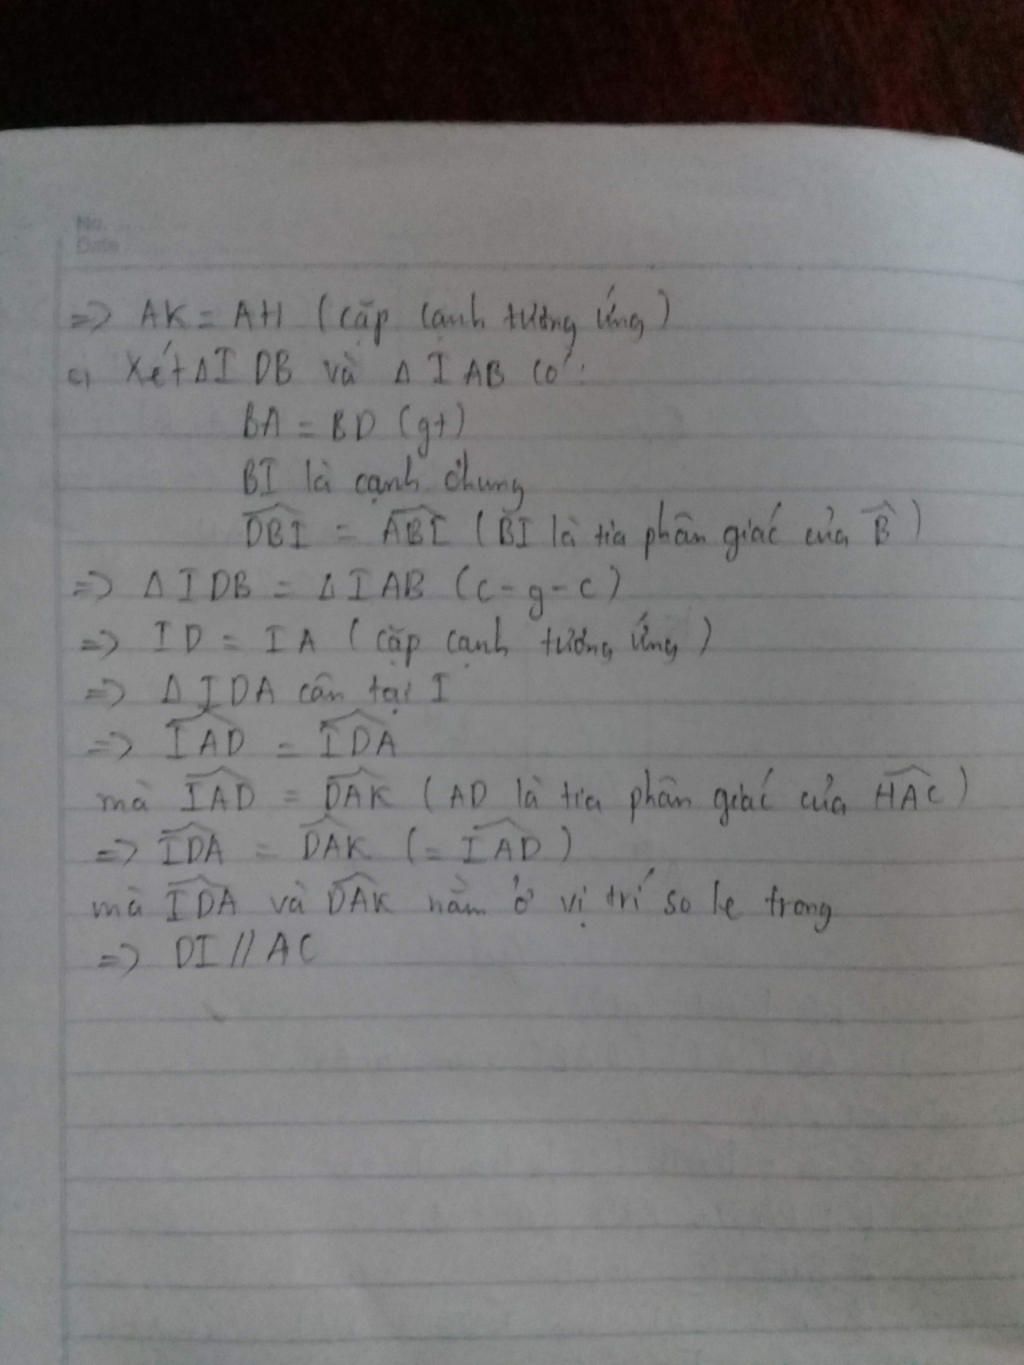 No.
Date
=> AK = AH (cặp cạnh tương ứng)
c, Xét Δ IDB và Δ IAB có:
BA = BD (gt)
BI là cạnh chung
\widehat{DBI} = \widehat{ABI} (BI là tia phân giác của \widehat{B})
=> Δ IDB = Δ IAB (c-g-c)
=> ID = IA (cặp cạnh tương ứng)
=> Δ IDA cân tại I
=> \widehat{IAD} = \widehat{IDA}
mà \widehat{IAD} = \widehat{DAK} (AD là tia phân giác của \widehat{HAC})
=> \widehat{IDA} = \widehat{DAK} (= \widehat{IAD})
mà \widehat{IDA} và \widehat{DAK} nằm ở vị trí so le trong
=> DI // AC